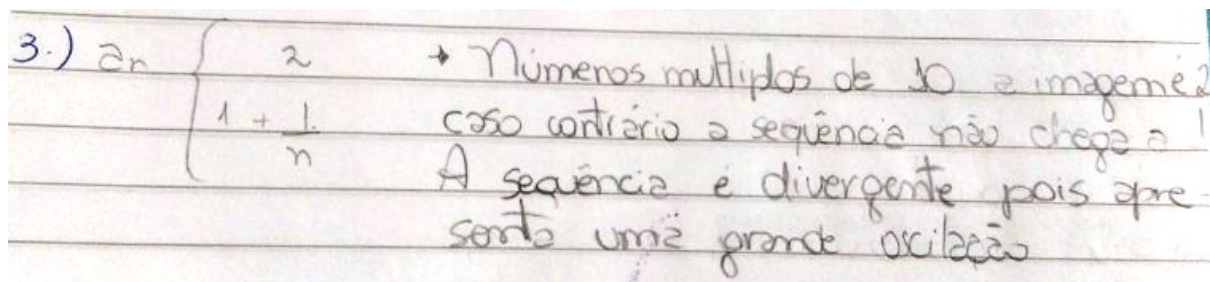 3.) an { 2 → Números multiplos de 10 a imagem é 2
1 + 1/n caso contrário a sequência não chega a 1
A sequência é divergente pois apre-
senta uma grande oscilação